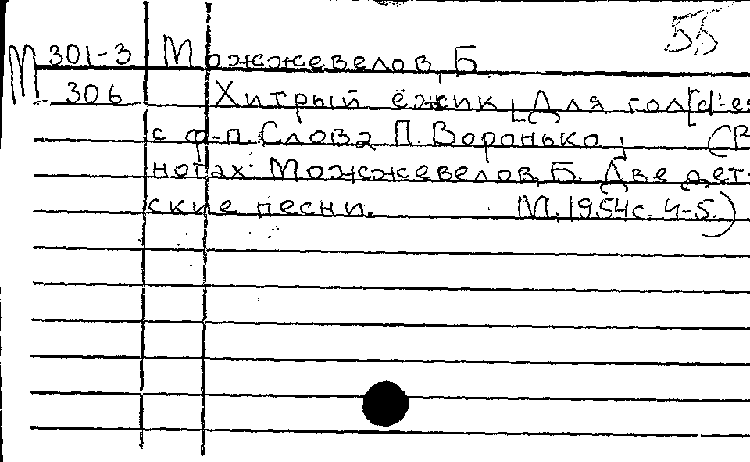 55
М 301-3 Можжевелов, Б.
306 Хитрый ёжик. Для гол[d'-e
с ф-п. Слова П. Воронько. (В
нотах: Можжевелов, Б. Две дет-
ские песни. М., 1954 с. 4-5.)